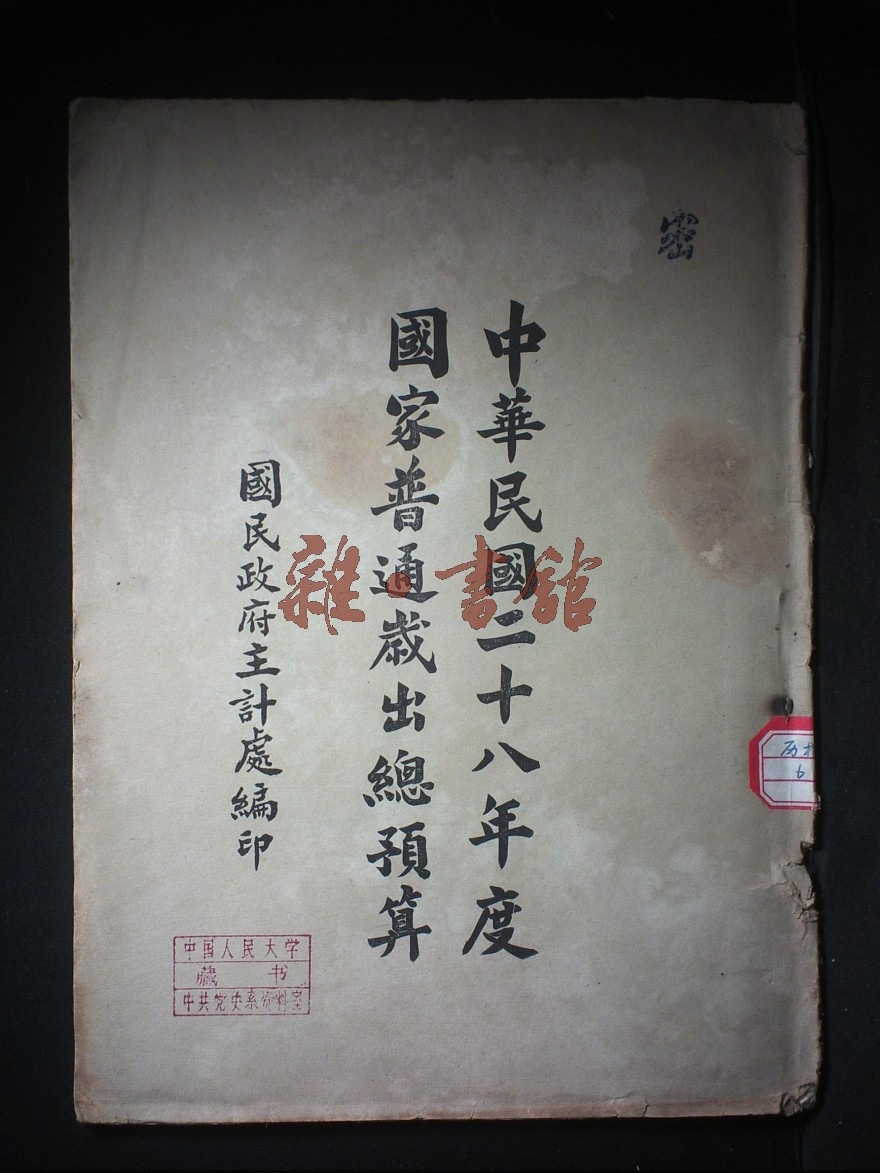 密
中華民國二十八年度
國家普通歲出總預算
國民政府主計處編印
雜·書館
中国人民大学
藏书
中共党史系资料室
6